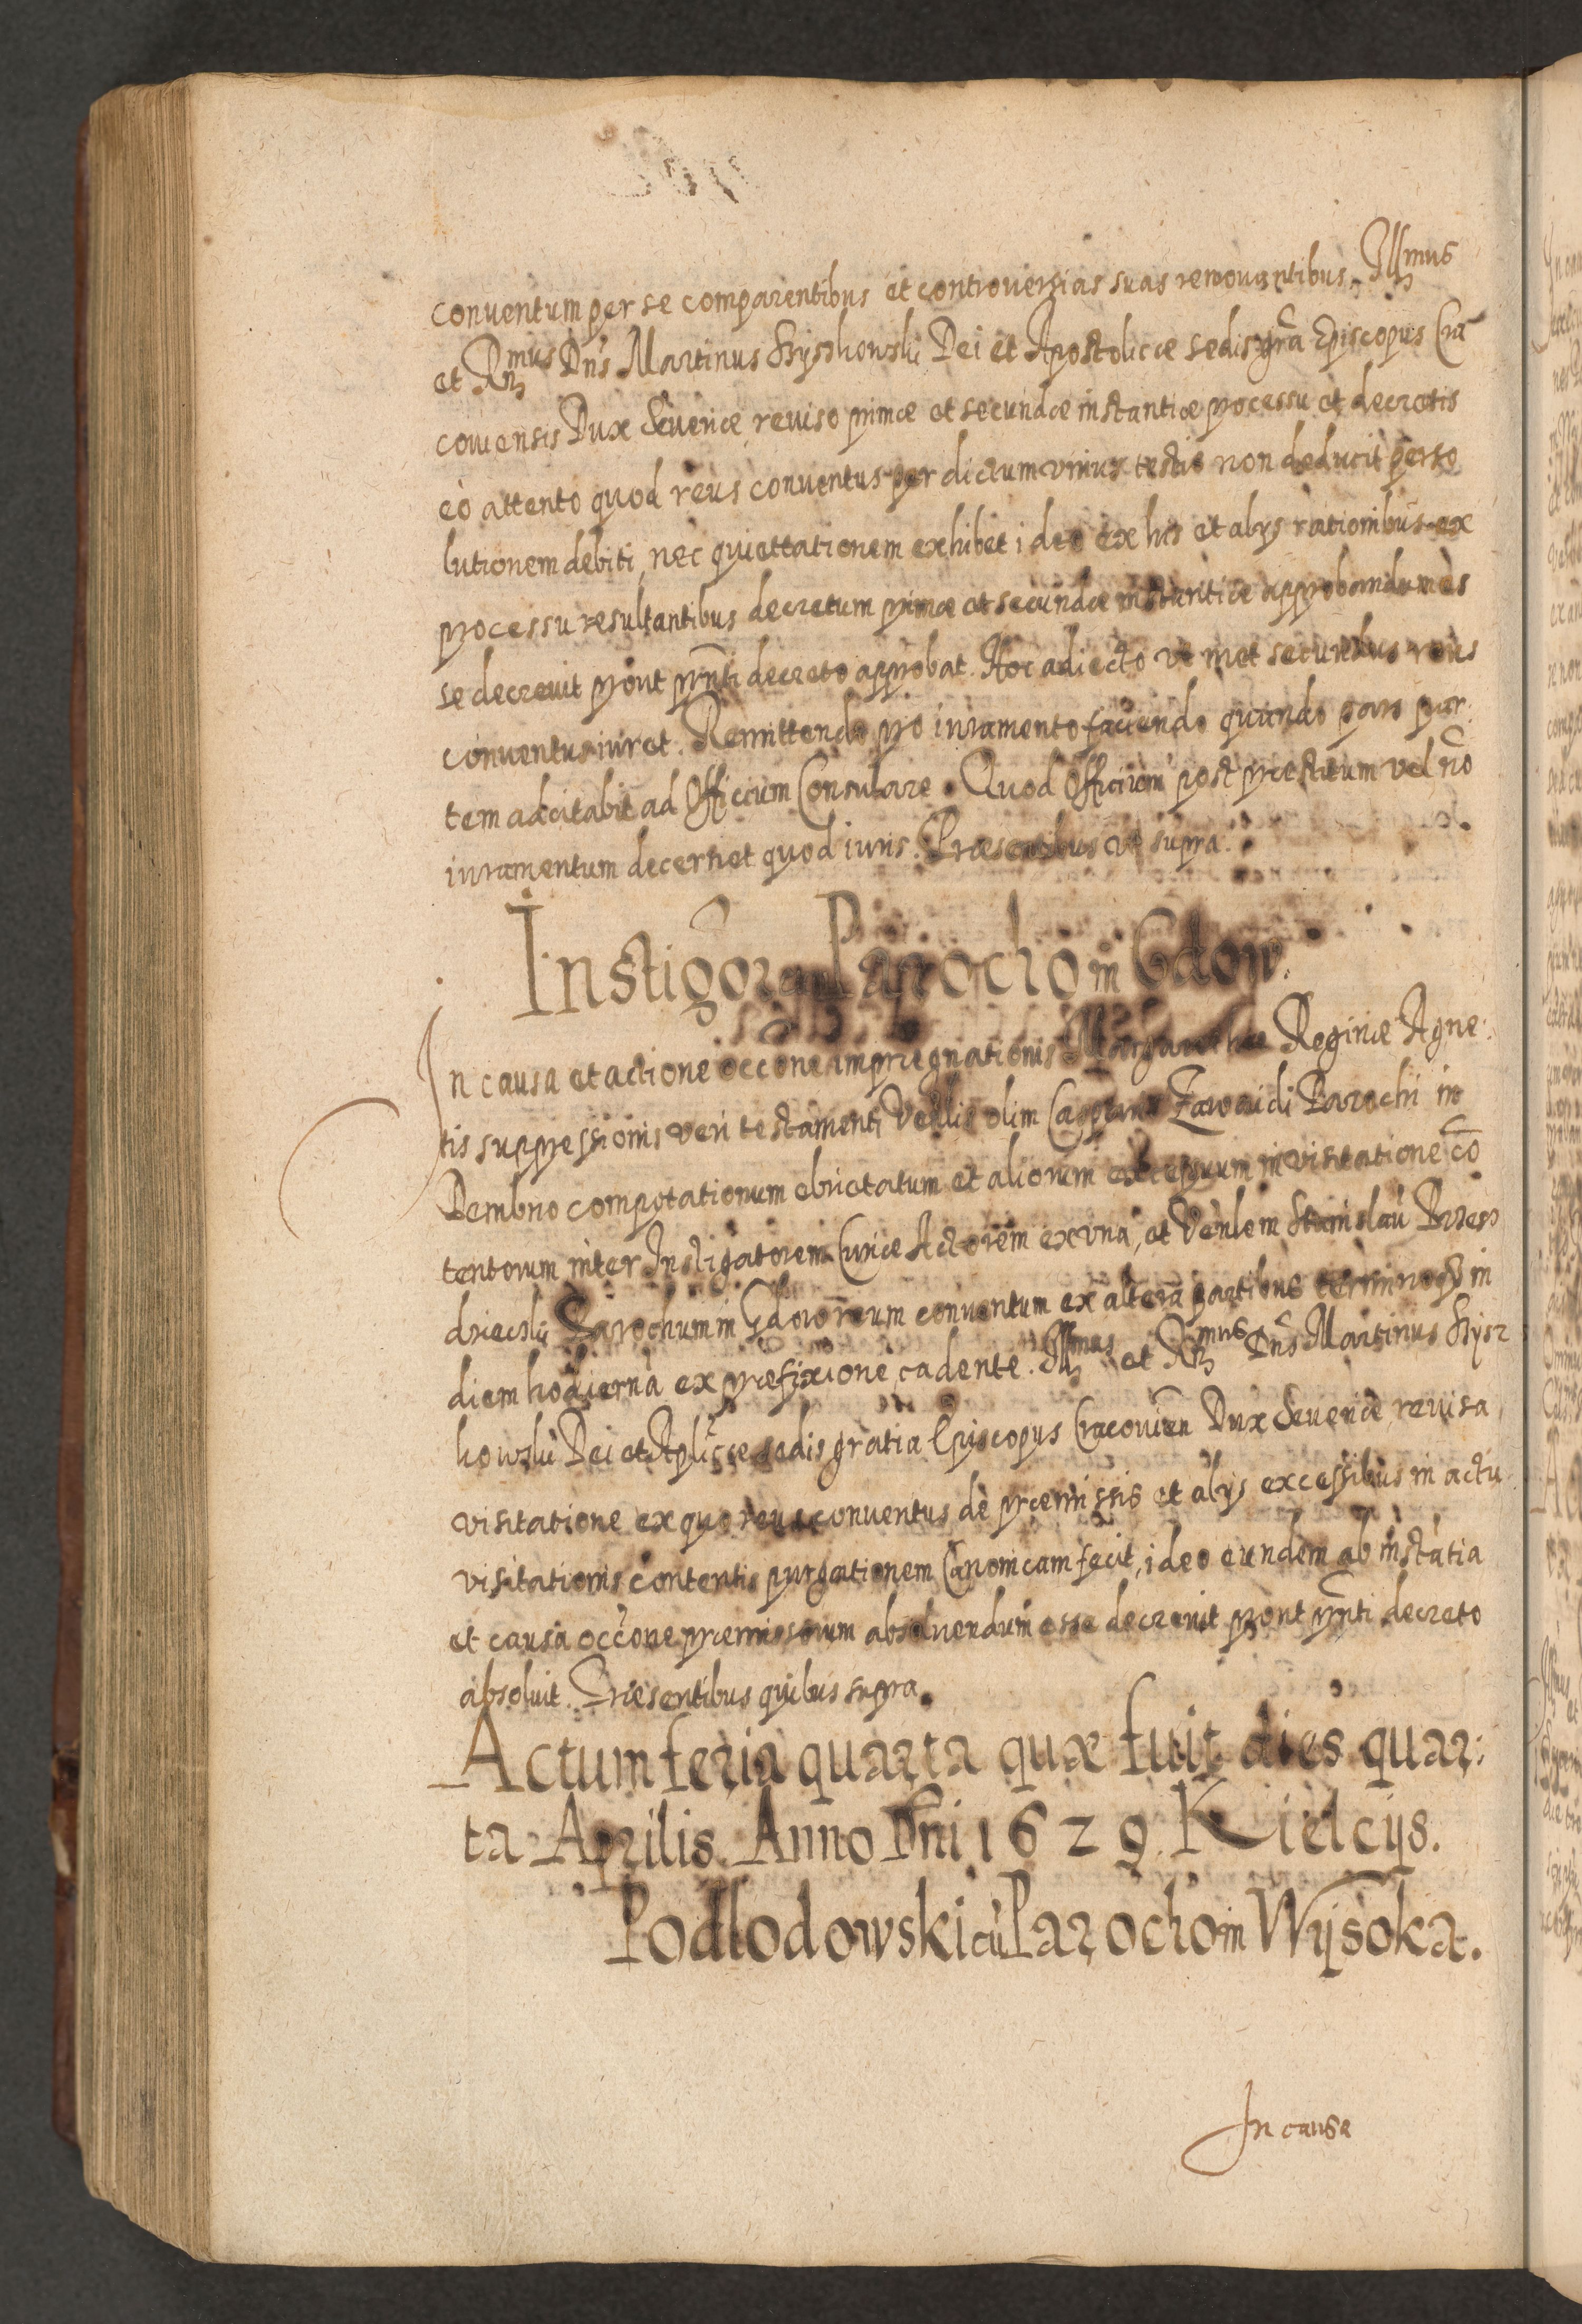 conventum per se comparentibus et controversias suas renovantibus. Illmus
et Rmus Dns Martinus Szyszkowski Dei et Apostolicæ sedis gra Episcopus Cra
coviensis Dux Severiæ reviso primæ et secundæ instantiæ processu et decretis
eo attento quod reus conventus per dictum unius testis non deducit perso
lutionem debiti, nec quiettationem exhibet ideo ex his et alijs rationibus ex
processu resultantibus decretum primæ et secundæ instantiæ approbandum es
se decrevit prout pnti decreto approbat. Hoc adiecto ut met secundus reus
conventus iuret. Remittendo pro iuramento faciendo quando pars par:
tem adcitabit ad Officium Consulare. Quod Officium post præstitum vel no
iuramentum decernet quod iuris. Præsentibus ut supra.
Instigor cum Parocho in Gdow.
In causa et actione occone impregnationis Margarethæ Reginæ Agne:
tis suppressionis veri testamenti Venlis olim Caspari Parochi in
Dembno compotationum ebrietatum et aliorum excessuum in visitatione co
tentorum inter Instigatorem Curiæ Actorem ex una, et Venlem Stanislau
Parochum in Gdow reum conventum ex altera partibus termino in
diem hodierna ex præfixione cadente. Illmus et Rmus Dns Martinus Szysz
kowski Dei et Aplicæ sedis gratia Episcopus Cracovien Dux Severiæ revisa
visitatione ex quo reus conventus de præmissis et alijs excessibus in actu
visitationis contentis purgationem Canonicam fecit, ideo eundem ab instatia
et causa occone præmissorum absolvendum esse decrevit prout pnti decreto
absolvit. Præsentibus quibus supra.
Actum feria quarta quæ fuit dies quar:
ta Aprilis. Anno Dni 1629. Kielcijs.
Podlodowski cu Parocho in Wysoka.
In causa